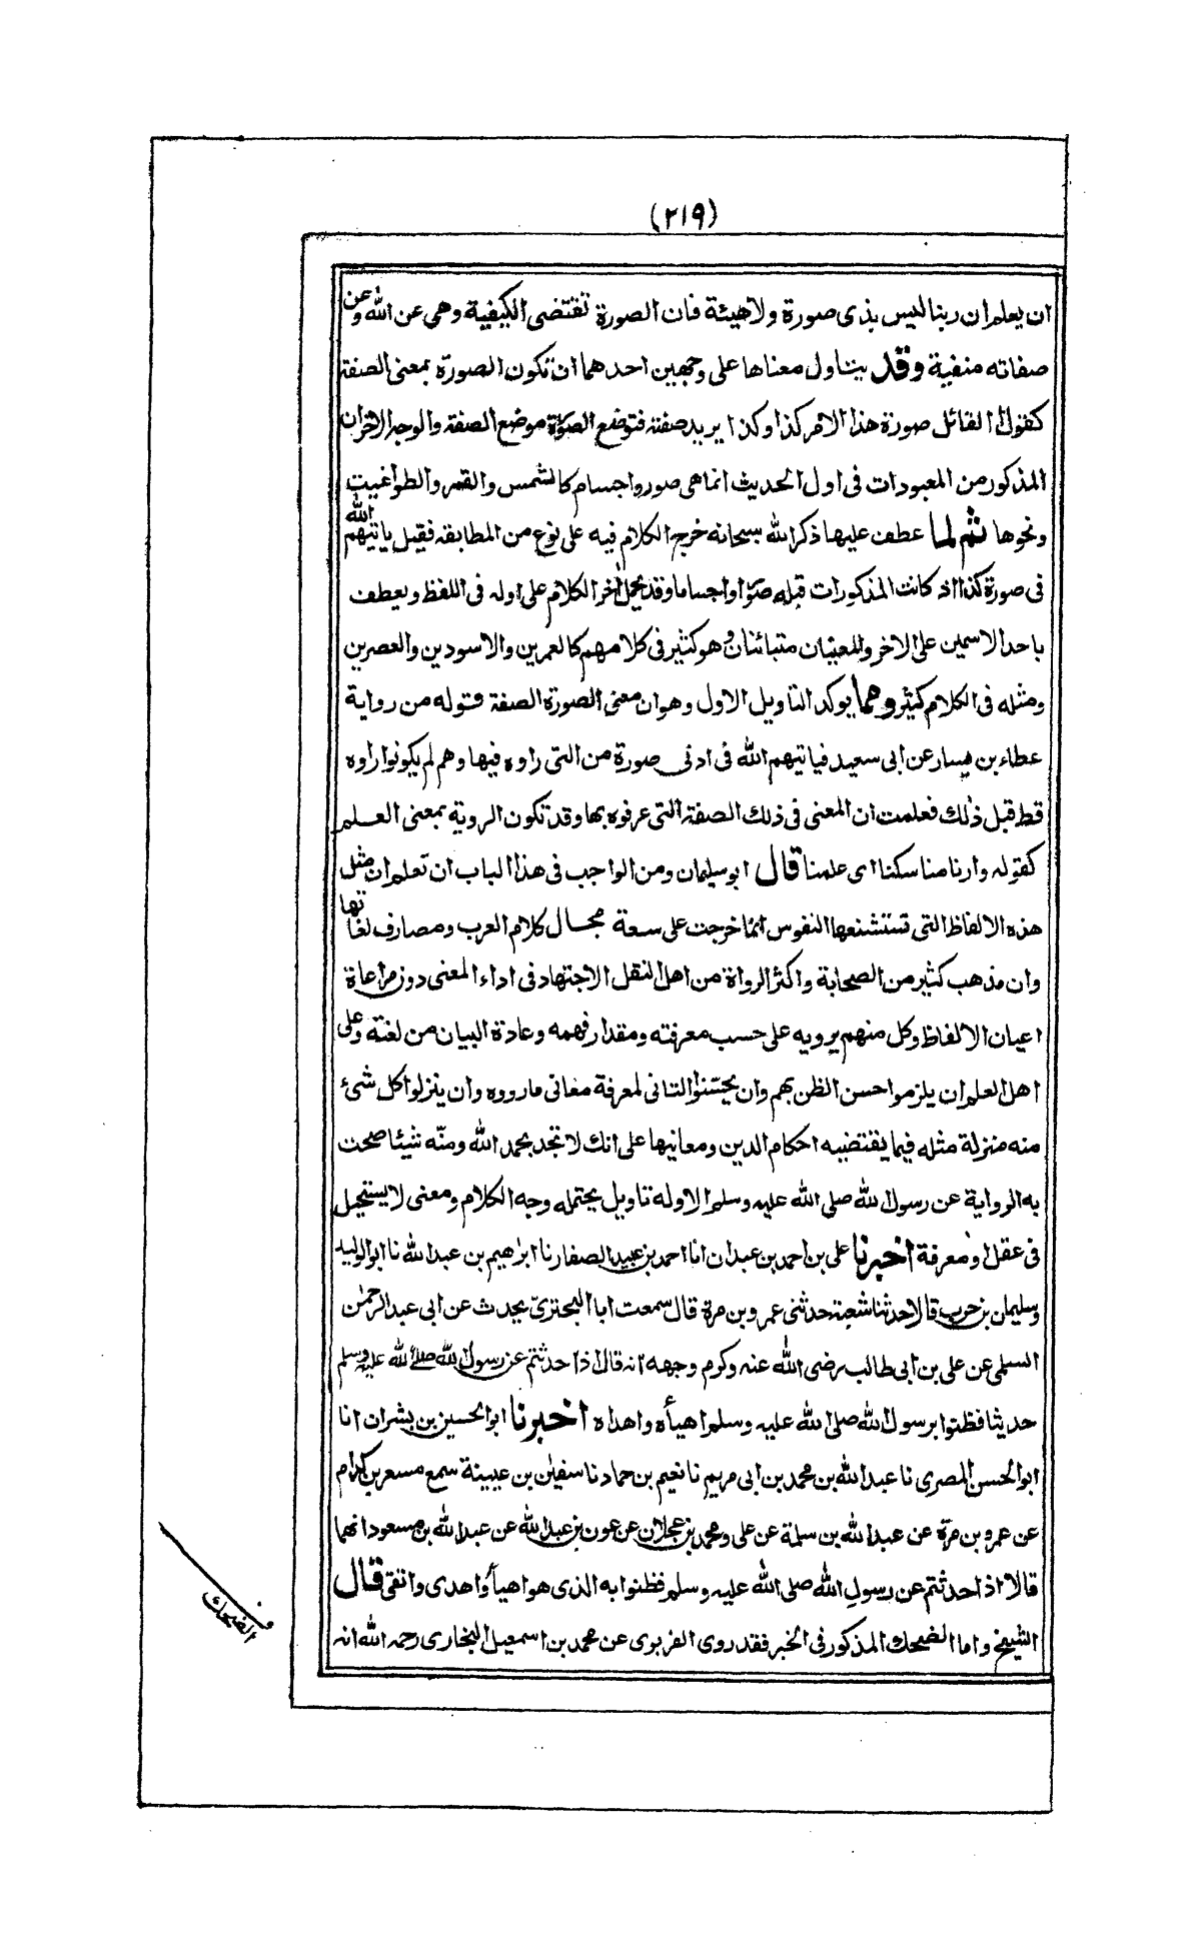 (٢١٩)
ان يعلم ان ربنا ليس بذى صورة ولا هيئة فان الصورة تقتضى الكيفية وهى عن الله وعن
صفاته منفية وقد يتاول معناها على وجهين احدهما ان تكون الصورة بمعنى الصفة
كقول القائل صورة هذا الامر كذا وكذا يريد صفته فتوضع الصورة موضع الصفة والوجه الاخر ان
المذكور من المعبودات فى اول الحديث انما هى صور واجسام كالشمس والقمر والطواغيت
ونحوها ثم لما عطف عليها ذكر الله سبحانه خرج الكلام فيه على نوع من المطابقة فقيل ياتيهم الله
فى صورة كذا اذ كانت المذكورات قبله صورا واجساما وقد يحمل اخر الكلام على اوله فى اللفظ ويعطف
باحد الاسمين على الاخر والمعنيان متبائنان وهو كثير فى كلامهم كالعمرين والاسودين والعصرين
ومثله فى الكلام كثير ومما يوكد التاويل الاول وهو ان معنى الصورة الصفة قوله من رواية
عطاء بن يسار عن ابى سعيد فياتيهم الله فى ادنى صورة من التى راوه فيها وهم لم يكونوا راوه
قط قبل ذلك فعلمت ان المعنى فى ذلك الصفة التى عرفوه بها وقد تكون الروية بمعنى العلم
كقوله وارنا مناسكنا اى علمنا قال ابو سليمان ومن الواجب فى هذا الباب ان تعلم ان مثل
هذه الالفاظ التى تستشنعها النفوس انما خرجت على سعة مجال كلام العرب ومصارف لغاتها
وان مذهب كثير من الصحابة واكثر الرواة من اهل النقل الاجتهاد فى اداء المعنى دون مراعاة
اعيان الالفاظ وكل منهم يرويه على حسب معرفته ومقدار فهمه وعادة البيان من لغته وعلى
اهل العلم ان يلزموا احسن الظن بهم وان يحسنوا التانى لمعرفة معانى مارووه وان ينزلوا كل شئ
منه منزلة مثله فيما يقتضيه احكام الدين ومعانيها على انك لا تجد بحمد الله ومنّه شيئا صحت
به الرواية عن رسول الله صلى الله عليه وسلم الا وله تاويل يحتمله وجه الكلام ومعنى لا يستحيل
فى عقل او معرفة اخبرنا على بن احمد بن عبدان انا احمد بن عبيد الصفار نا ابرهيم بن عبد الله نا ابو الوليد
وسليمان بن حرب قالا حدثنا شعبة حدثنى عمرو بن مرة قال سمعت ابا البخترىّ يحدث عن ابى عبد الرحمٰن
السلمى عن على بن ابى طالب رضى الله عنه وكرم وجهه انه قال اذا حدثتم عن رسول الله صلى الله عليه وسلم
حديثا فظنوا برسول الله صلى الله عليه وسلم اهيأه واهداه اخبرنا ابو الحسين بن بشران انا
ابو الحسن المصرى نا عبد الله بن محمد بن ابى مريم نا نعيم بن حماد نا سفيٰن بن عيينة سمع مسعر بن كدام
عن عمرو بن مرة عن عبد الله بن سلمة عن على ومحمد بن عجلان عن عون بن عبد الله عن عبد الله بن مسعود انهما
قالا اذا حدثتم عن رسول الله صلى الله عليه وسلم فظنوا به الذى هو اهيأ واهدى واتقى قال
الشيخ واما الضحك المذكور فى الخبر فقد روى الفربرى عن محمد بن اسمعيل البخارى رحمه الله انه
الضحك